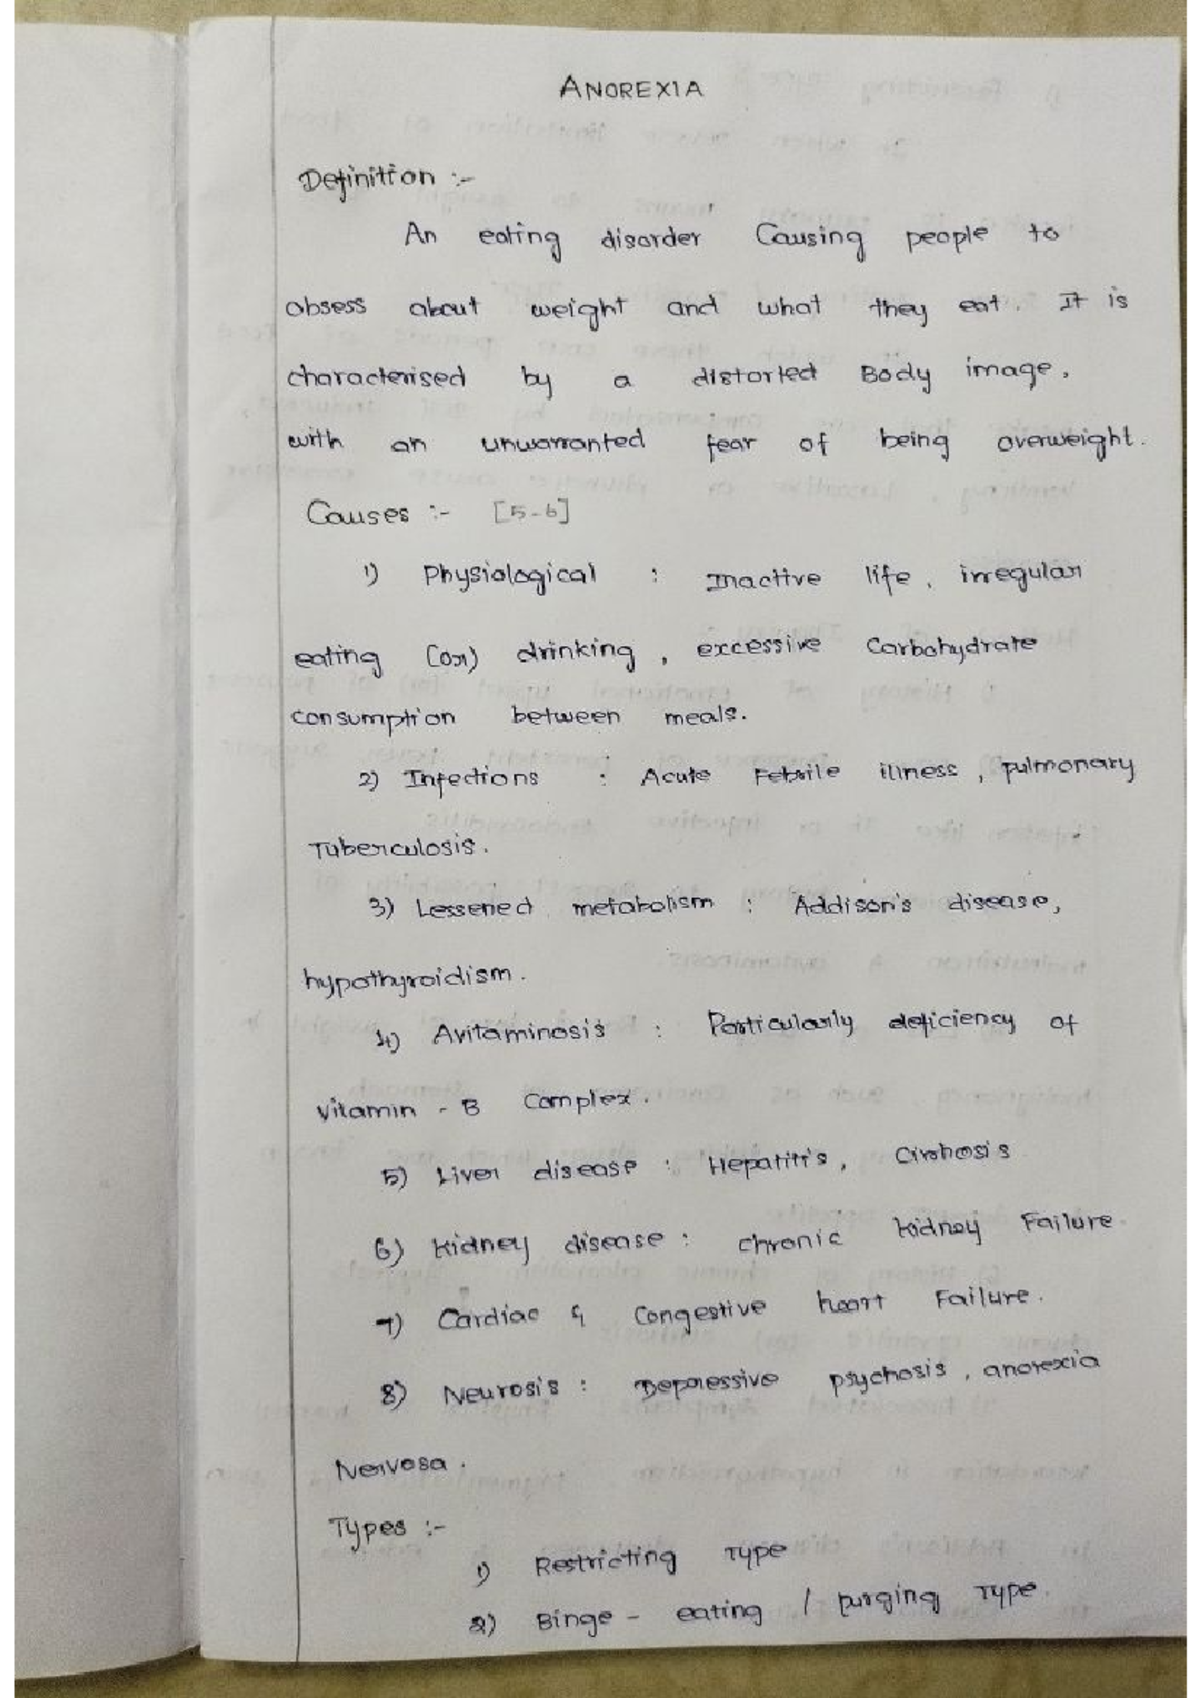 ANOREXIA
Definition :-
An eating disorder Causing people to
obsess about weight and what they eat. It is
characterised by a distorted Body image,
with an unwarranted fear of being overweight.
Causes :- [5-6]
1) Physiological : Inactive life, irregular
eating (or) drinking, excessive Carbohydrate
consumption between meals.
2) Infections : Acute Febrile illness, pulmonary
Tuberculosis.
3) Lessened metabolism : Addison's disease,
hypothyroidism.
4) Avitaminosis : Particularly deficiency of
vitamin - B Complex.
5) Liver disease : Hepatitis, Cirrhosis
6) Kidney disease : chronic kidney Failure.
7) Cardiac & Congestive heart Failure.
8) Neurosis : Depressive psychosis, anorexia
Nervosa.
Types :-
1) Restricting Type
2) Binge - eating / purging Type.